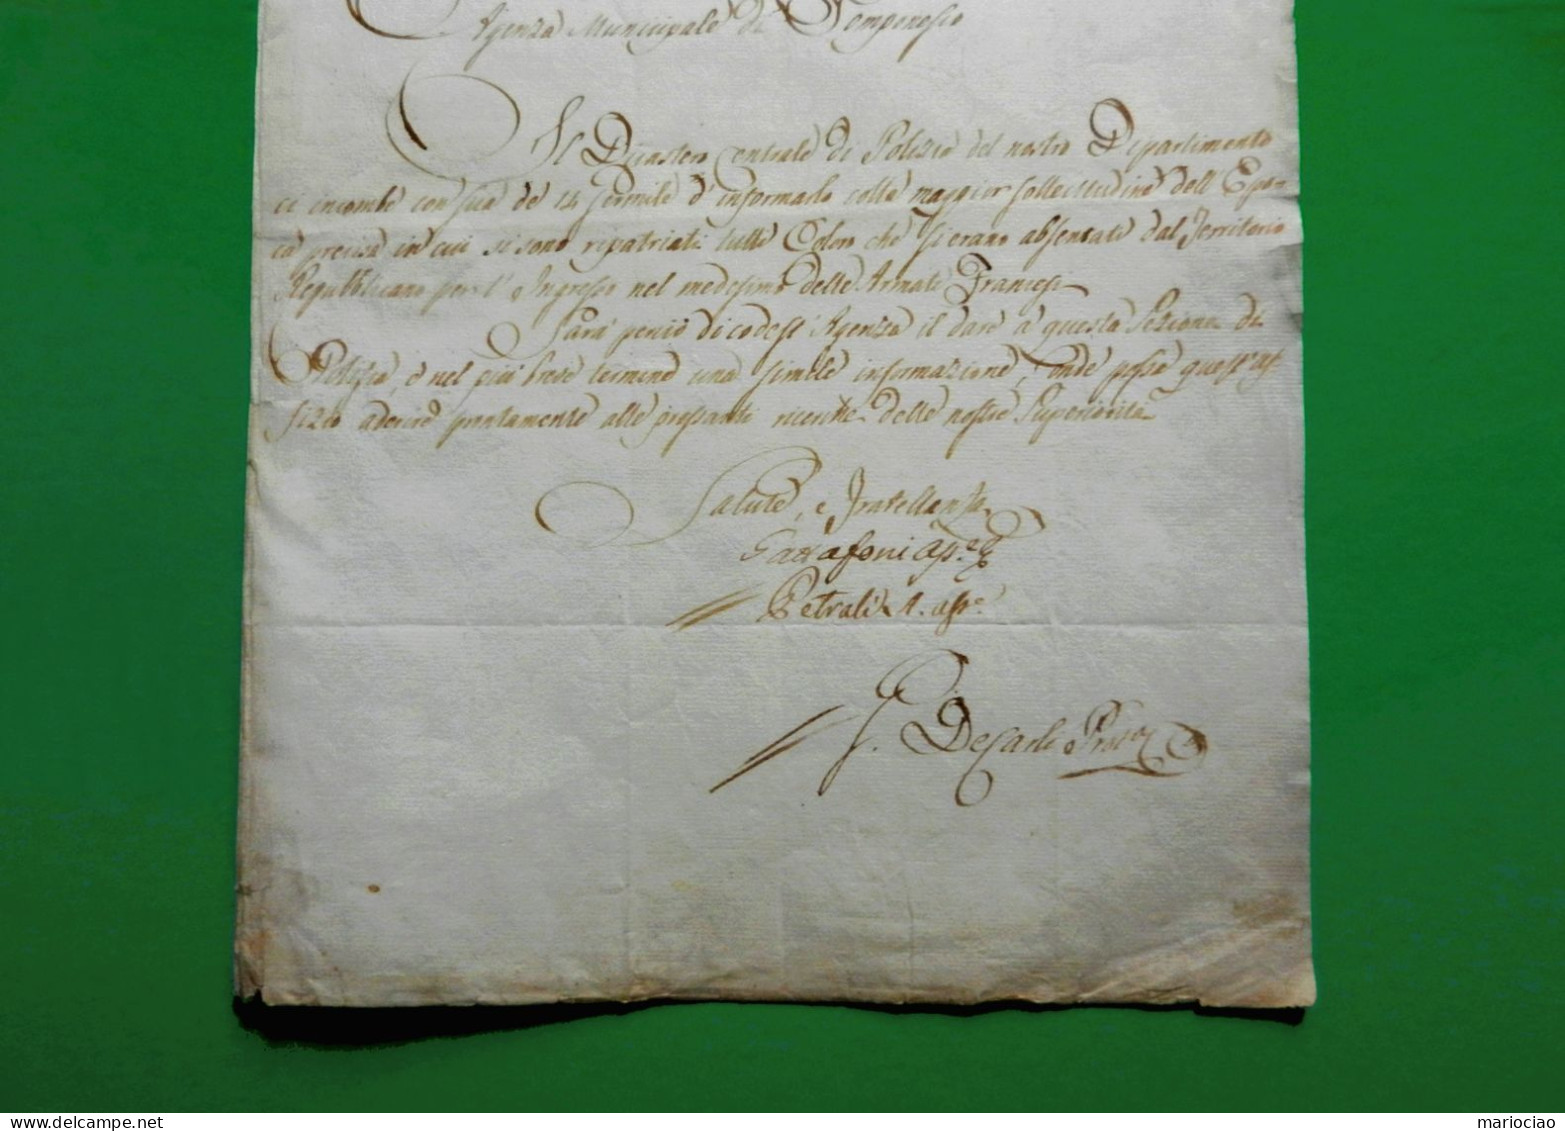 Agenza Municipale di Tomponesio
Il Dicastero Centrale di Polizia del nostro Dipartimento
ci incombe con sua de' 14 Fermile d'informarlo colla maggior sollecitudine dell'Epo-
ca precisa in cui si sono ripatriati tutti Coloro che si erano absentati dal Territorio
Repubblicano per l'Ingresso nel medesimo delle Armate Francesi
Sarà perciò di codest'Agenza il dare a questa Sezione di
Polizia, e nel più breve termine una simile informazione, onde possa quest'Uf-
fizio aderire prontamente alle pressanti ricerche delle nostre Superiorità
Salute, e Fratellanza
Petrali A. agg.o
De Carli
mariociao